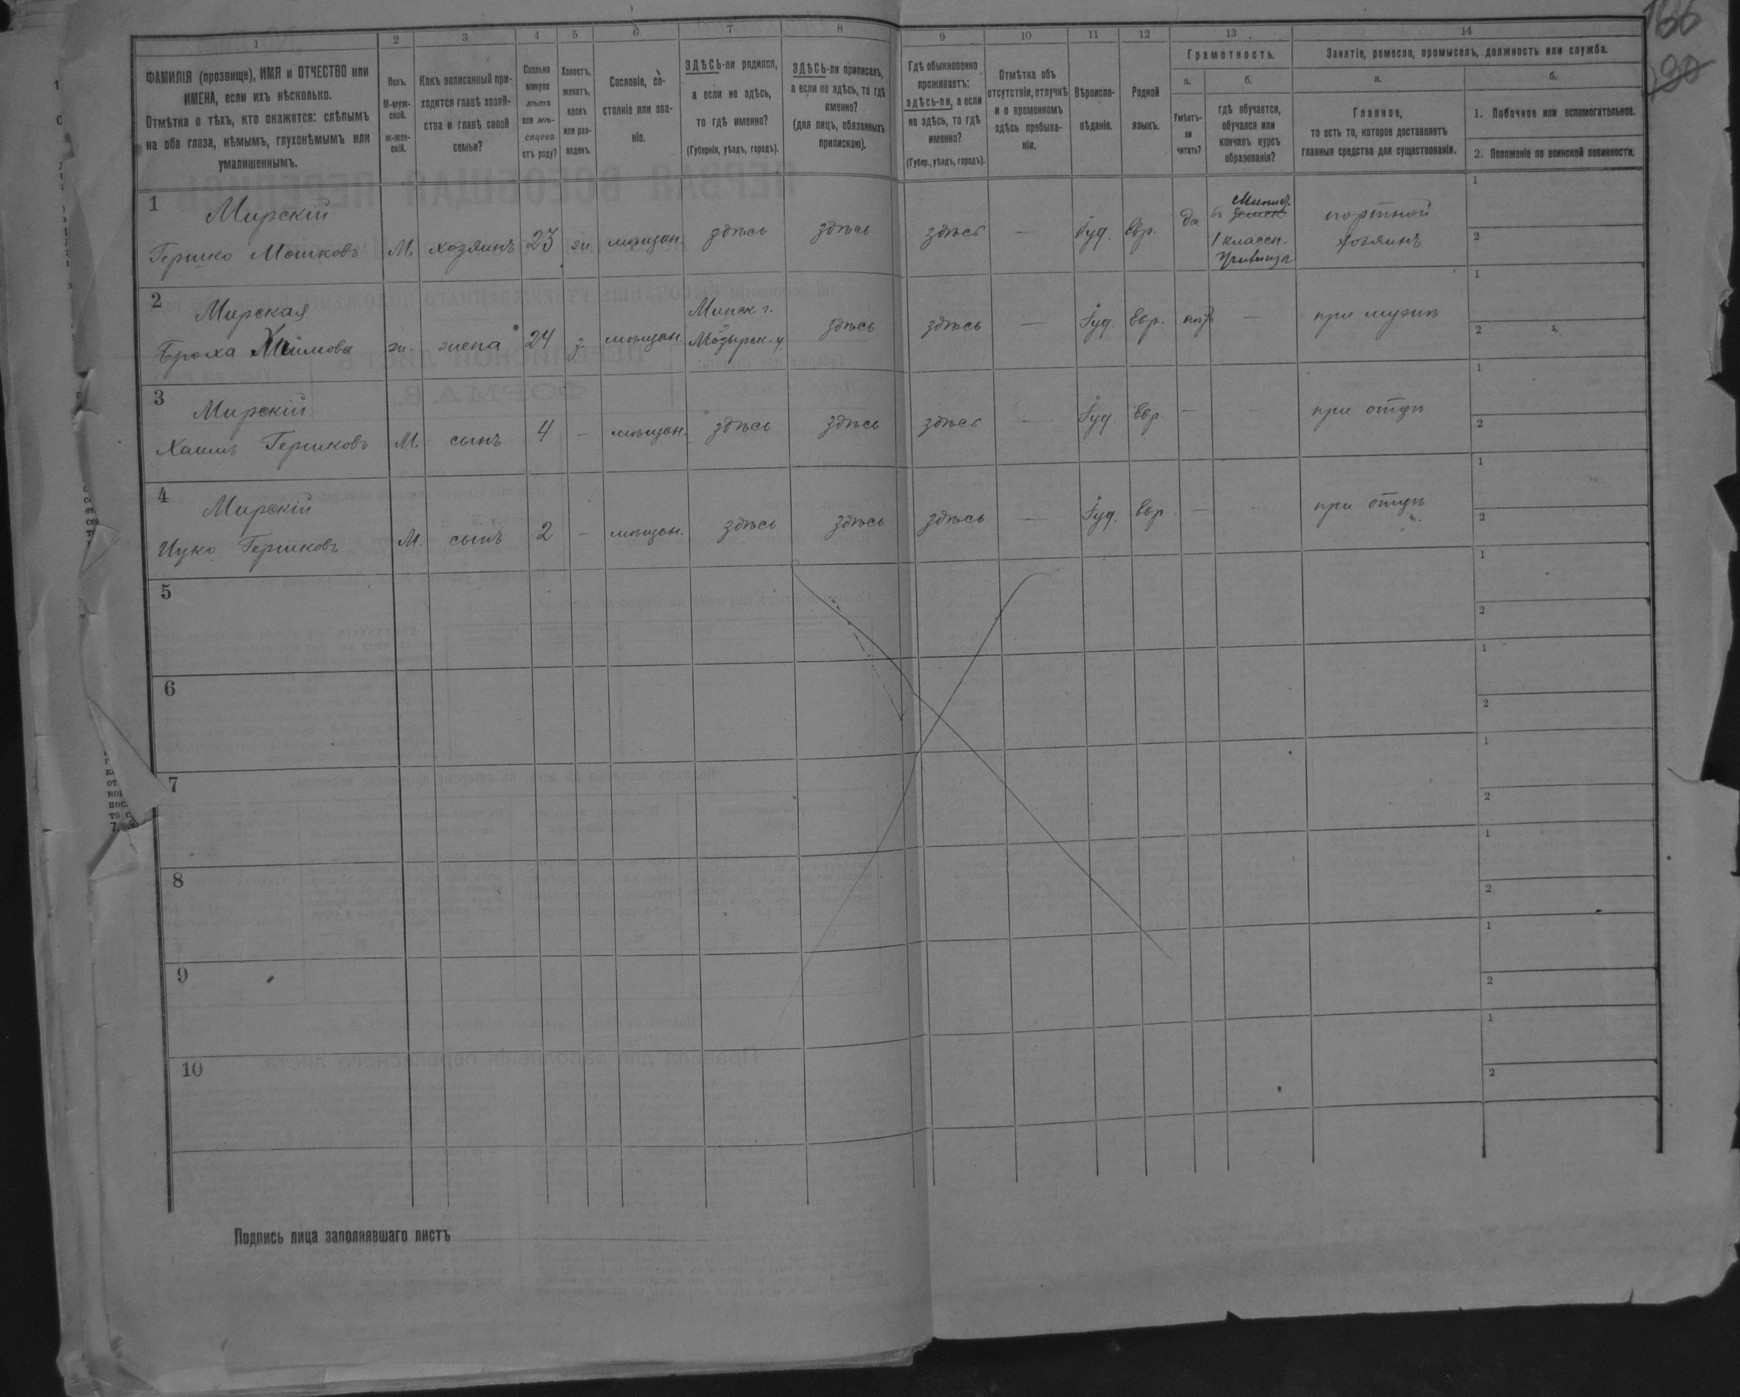 166
190
1 2 3 4 5 6 7 8 9 10 11 12 13 14
ФАМИЛІЯ (прозвище), ИМЯ и ОТЧЕСТВО или
ИМЕНА, если ихъ нѣсколько.
Отмѣтка о тѣхъ, кто окажется: слѣпымъ
на оба глаза, нѣмымъ, глухонѣмымъ или
умалишеннымъ.
Полъ.
М-муж-
ской.
ж-жен-
скій.
Какъ записанный при-
ходится главѣ хозяй-
ства и главѣ своей
семьи?
Сколько
минуло
лѣтъ
или мѣ-
сяцевъ
отъ роду?
Холостъ,
женатъ,
вдовъ
или раз-
веденъ.
Сословіе, со-
стояніе или зва-
ніе.
ЗДѢСЬ-ли родился,
а если не здѣсь,
то гдѣ именно?
(Губернія, уѣздъ, городъ).
ЗДѢСЬ-ли приписанъ,
а если не здѣсь, то гдѣ
именно?
(для лицъ, обязанныхъ
припискою).
Гдѣ обыкновенно
проживаетъ:
здѣсь-ли, а если
не здѣсь, то гдѣ
именно?
(Губер., уѣздъ, городъ).
Отмѣтка объ
отсутствіи, отлучкѣ
и о временномъ
здѣсь пребыва-
ніи.
Вѣроиспо-
вѣданіе.
Родной
языкъ.
Грамотность.
а.
Умѣетъ-
ли
читать?
б.
гдѣ обучается,
обучался или
кончилъ курсъ
образованія?
Занятіе, ремесло, промыселъ, должность или служба.
а.
Главное,
то есть то, которое доставляетъ
главныя средства для существованія.
б.
1. Побочное или вспомогательное.
2. Положеніе по воинской повинности.
1 Мирскій
Гершко Мошковъ М. хозяинъ 23 ж. мѣщан. здѣсь здѣсь здѣсь — Іуд. Евр. да
1 классн.
портной
хозяинъ
1
2
2 Мирская
Броха Хаимова ж. жена 24 з. мѣщан. Минск г.
Мозырск. у. здѣсь здѣсь — Іуд. Евр. нѣтъ — при мужѣ
1
2
3 Мирскій
Хаимъ Гершковъ М. сынъ 4 — мѣщан. здѣсь здѣсь здѣсь — Іуд. Евр. — — при отцѣ
1
2
4 Мирскій
Ицко Гершковъ М. сынъ 2 — мѣщан. здѣсь здѣсь здѣсь — Іуд. Евр. — — при отцѣ
1
2
5
1
2
6
1
2
7
1
2
8
1
2
9
1
2
10
1
2
Подпись лица заполнявшаго листъ